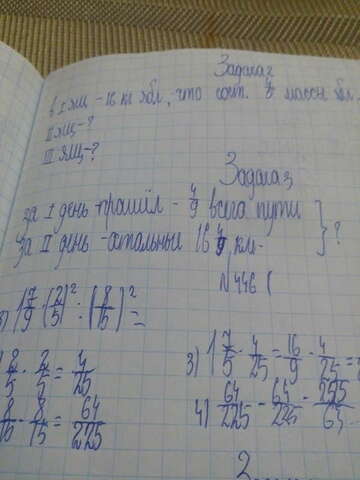 Задача 2
в I ящ - 16 кг ябл., что сост. массы ябл.
II ящ - ?
III ящ - ?
Задача 3
за I день прошёл - 4/9 всего пути
за II день - остальные 16 км. } ?
N 446 (
3) 1 7/9 · (2/5)² : (8/15)² =
2/5 · 2/5 = 4/25
3) 1 7/5 · 4/25 = 16/9 · 4/25 =
8/15 · 8/15 = 64/225
4) 64/225 - 64/225 ·